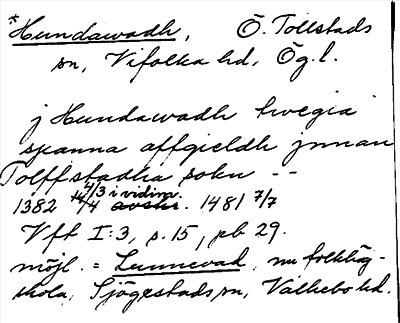 *Hundawadh, Ö. Tollstads
sn, Vifolka hd, Ög. l.
j Hundawadh twegia
spanna affgieldh jnnan
Tolffstadha sokn --
1382 14/4 avskr. 4/3 i vidim. 1481 7/7
Vft I:3, s. 15, pb 29.
möjl. = Lunnevad, nu folkhög-
skola, Sjögestads sn, Valkebo hd.